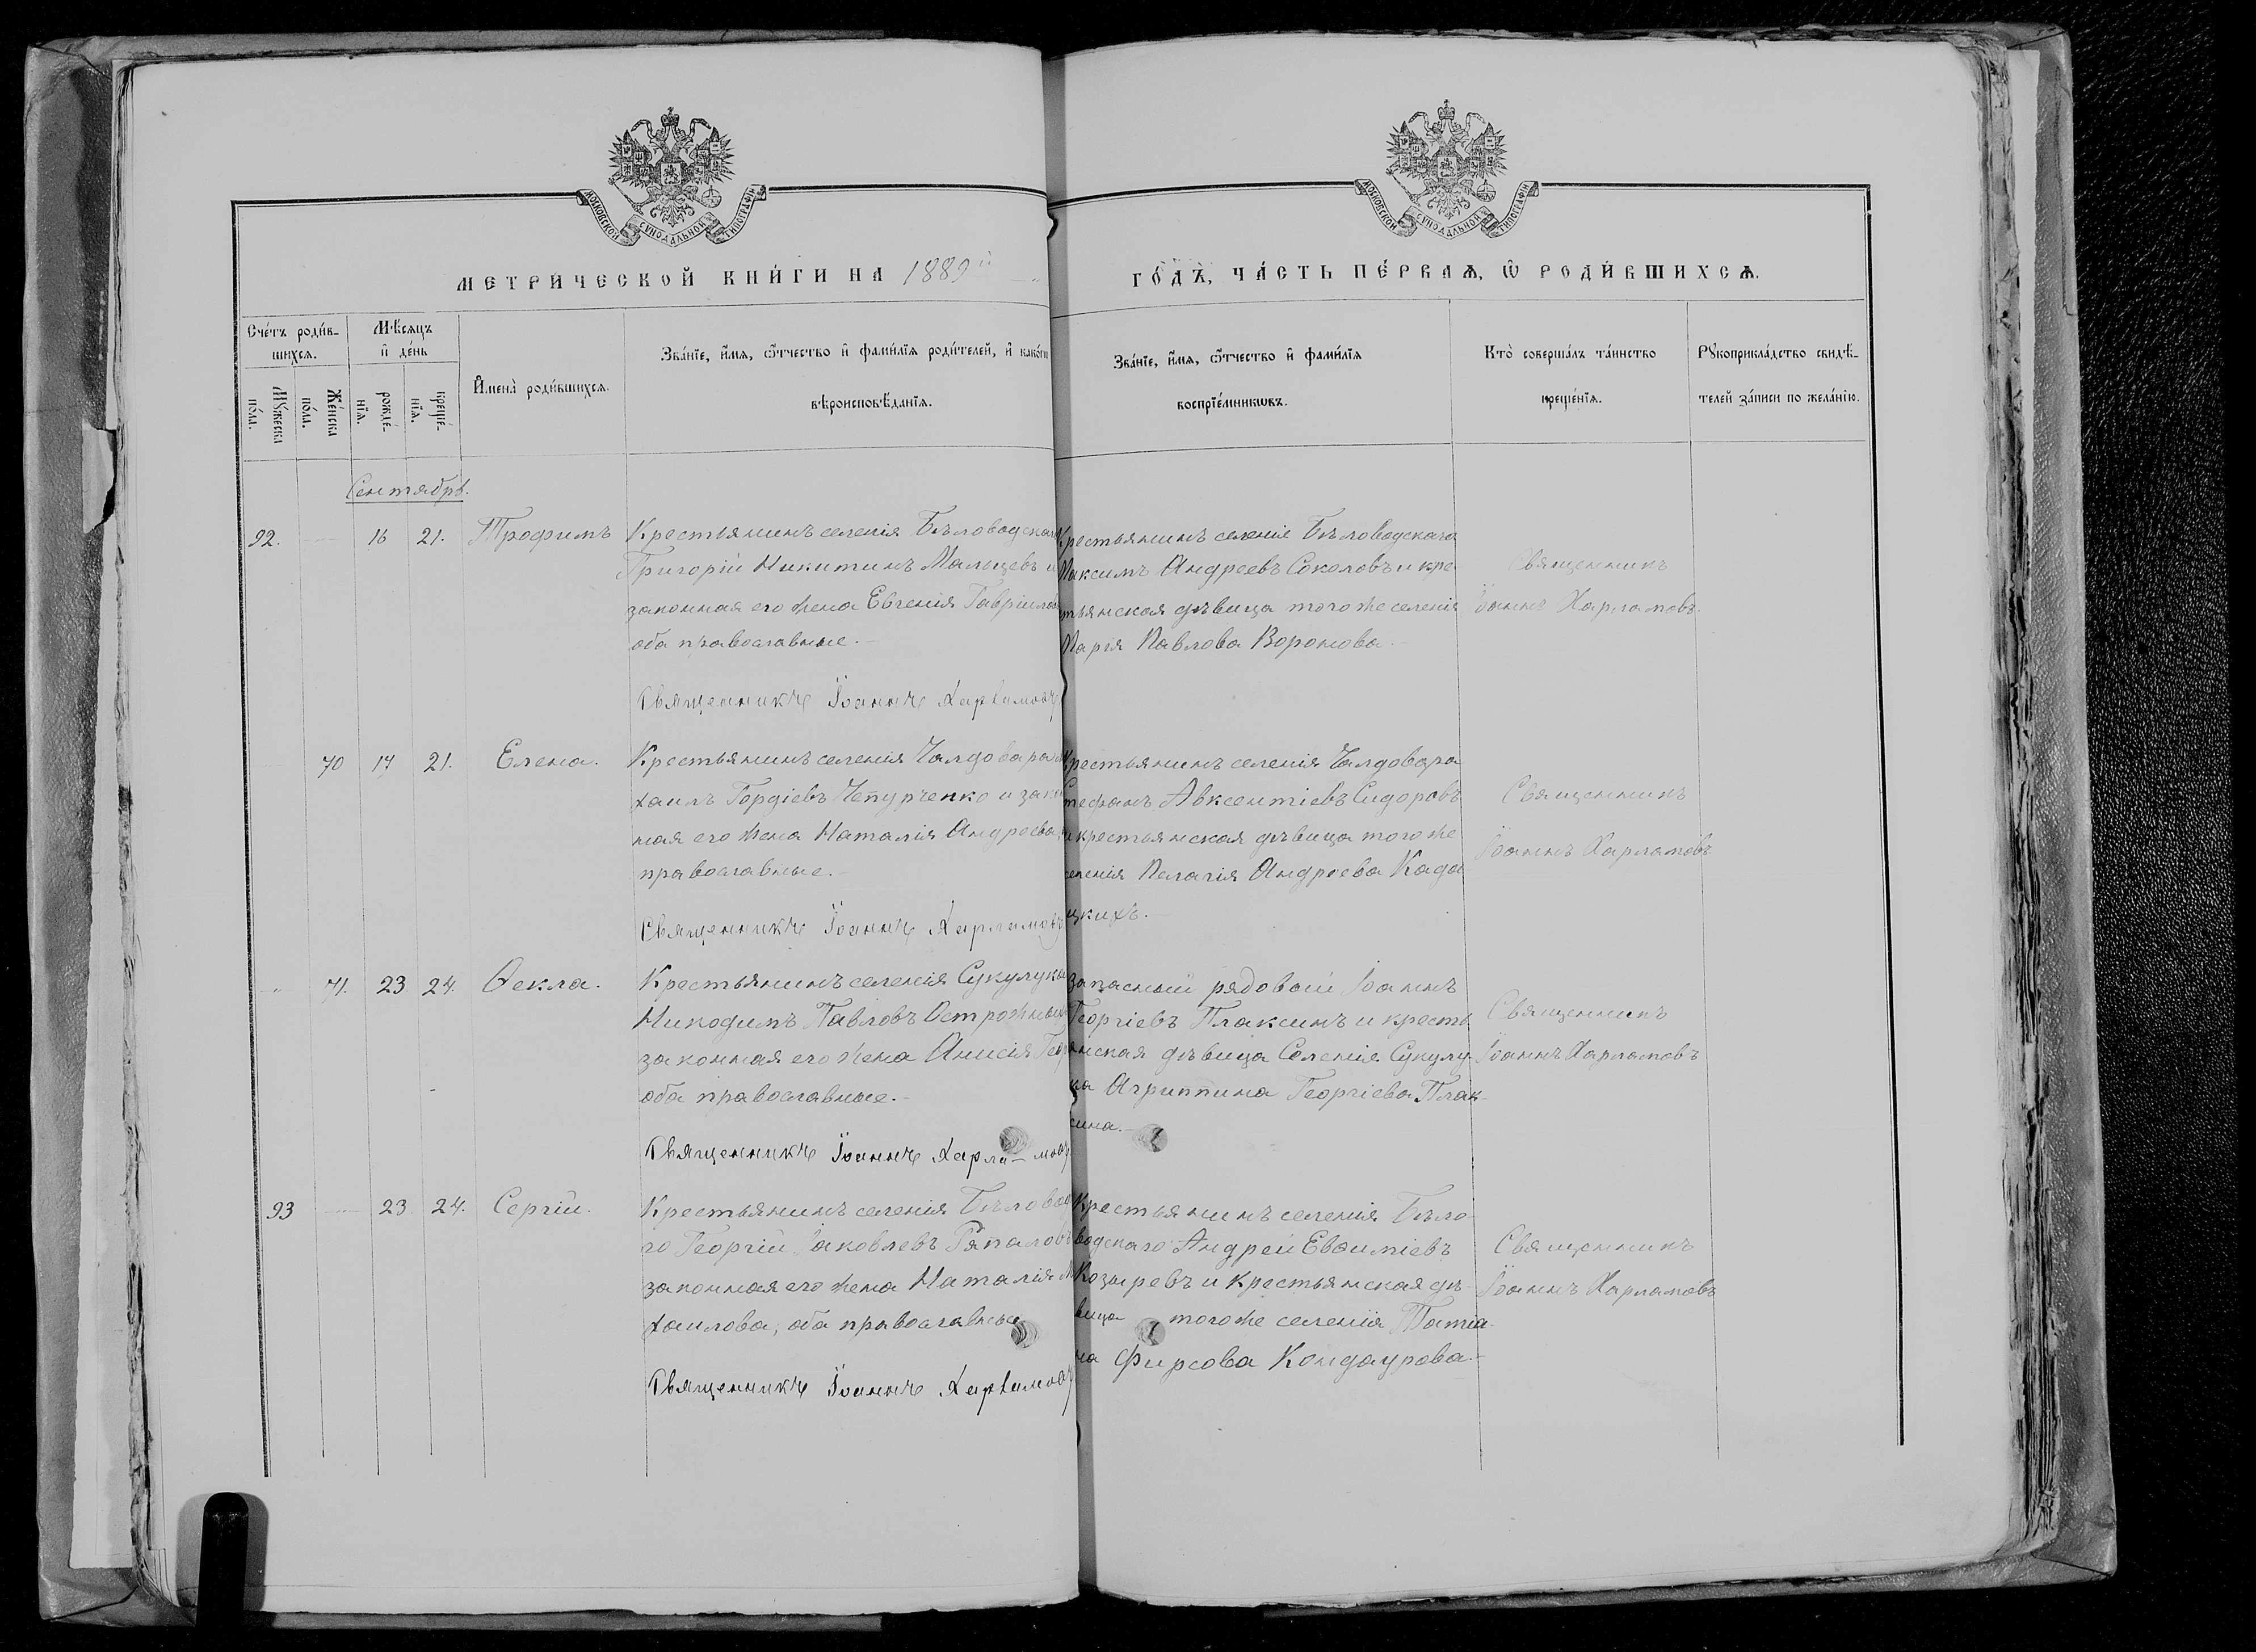 МОСКОВСКОЙ СѴНОДАЛЬНОЙ ТИПОГРАФІИ
МОСКОВСКОЙ СѴНОДАЛЬНОЙ ТИПОГРАФІИ
МЕТРИЧЕСКОЙ КНИ́ГИ НА 1889й
ГО́ДЪ, ЧА́СТЬ ПЕ́РВАѦ, Ѡ҆ РОДИ́ВШИХСѦ.
Сче́тъ роди́в-
шихсѧ.
Мѣ́сѧцъ
и҆ де́нь
Мꙋ́жеска
по́ла.
Же́нска
по́ла.
рожде́-
нїѧ.
креще́-
нїѧ.
И҆мена̀ роди́вшихсѧ.
Зва́нїе, и҆́мѧ, ѻ҆́тчество и҆ фами́лїѧ роди́телей, и҆ како́гѡ
вѣроисповѣ́данїѧ.
Зва́нїе, и҆́мѧ, ѻ҆́тчество и҆ фами́лїѧ
воспрїе́мникѡвъ.
Кто̀ соверша́лъ та́инство
креще́нїѧ.
Рꙋкоприкла́дство свидѣ́-
телей за́писи по жела́нїю.
Сентябрь.
92. 16 21. Трофимъ
Крестьянинъ селенія Бѣловодскаго
Григорій Никитинъ Мальцевъ и
законная его жена Евгенія Гавріилов
оба православные.
Священникъ Іоаннъ Харламовъ
Крестьянинъ селенія Бѣловодскаго
Максимъ Андреевъ Соколовъ и кре
стьянская дѣвица того же селенія
Марія Павлова Воронова.
Священникъ
Іоаннъ Харламовъ.
70 17 21. Елена.
Крестьянинъ селенія Чалдовара
хаилъ Гордіевъ Чепурченко и зако
ная его жена Наталія Андреева,
православные.
Священникъ Іоаннъ Харламовъ
Крестьянинъ селенія Чалдовара
Стефанъ Авксентіевъ Сидоровъ
и крестьянская дѣвица того же
селенія Пелагія Андреева Када
цкихъ.
Священникъ
Іоаннъ Харламовъ
71. 23 24. Ѳекла.
Крестьянинъ селенія Сукулука
Никодимъ Павловъ Острожныхъ
законная его жена Анисія Геор
оба православные.
Священникъ Іоаннъ Харла-мовъ
Запасный рядовый Іоаннъ
Георгіевъ Плаксинъ и кресть
янская дѣвица Селенія Сукулу-
ка Агриппина Георгіева Плак-
сина.
Священникъ
Іоаннъ Харламовъ
93 23 24. Сергій.
Крестьянинъ селенія Бѣловод
го Георгій Іаковлевъ Ряпаловъ
законная его жена Наталія М
хаилова, оба православные
Священникъ Іоаннъ Харламовъ
Крестьянинъ селенія Бѣло-
водскаго Андрей Евѳиміевъ
Козыревъ и крестьянская дѣ-
вица того же селенія Татіа-
на Фирсова Кондаурова.
Священникъ
Іоаннъ Харламовъ